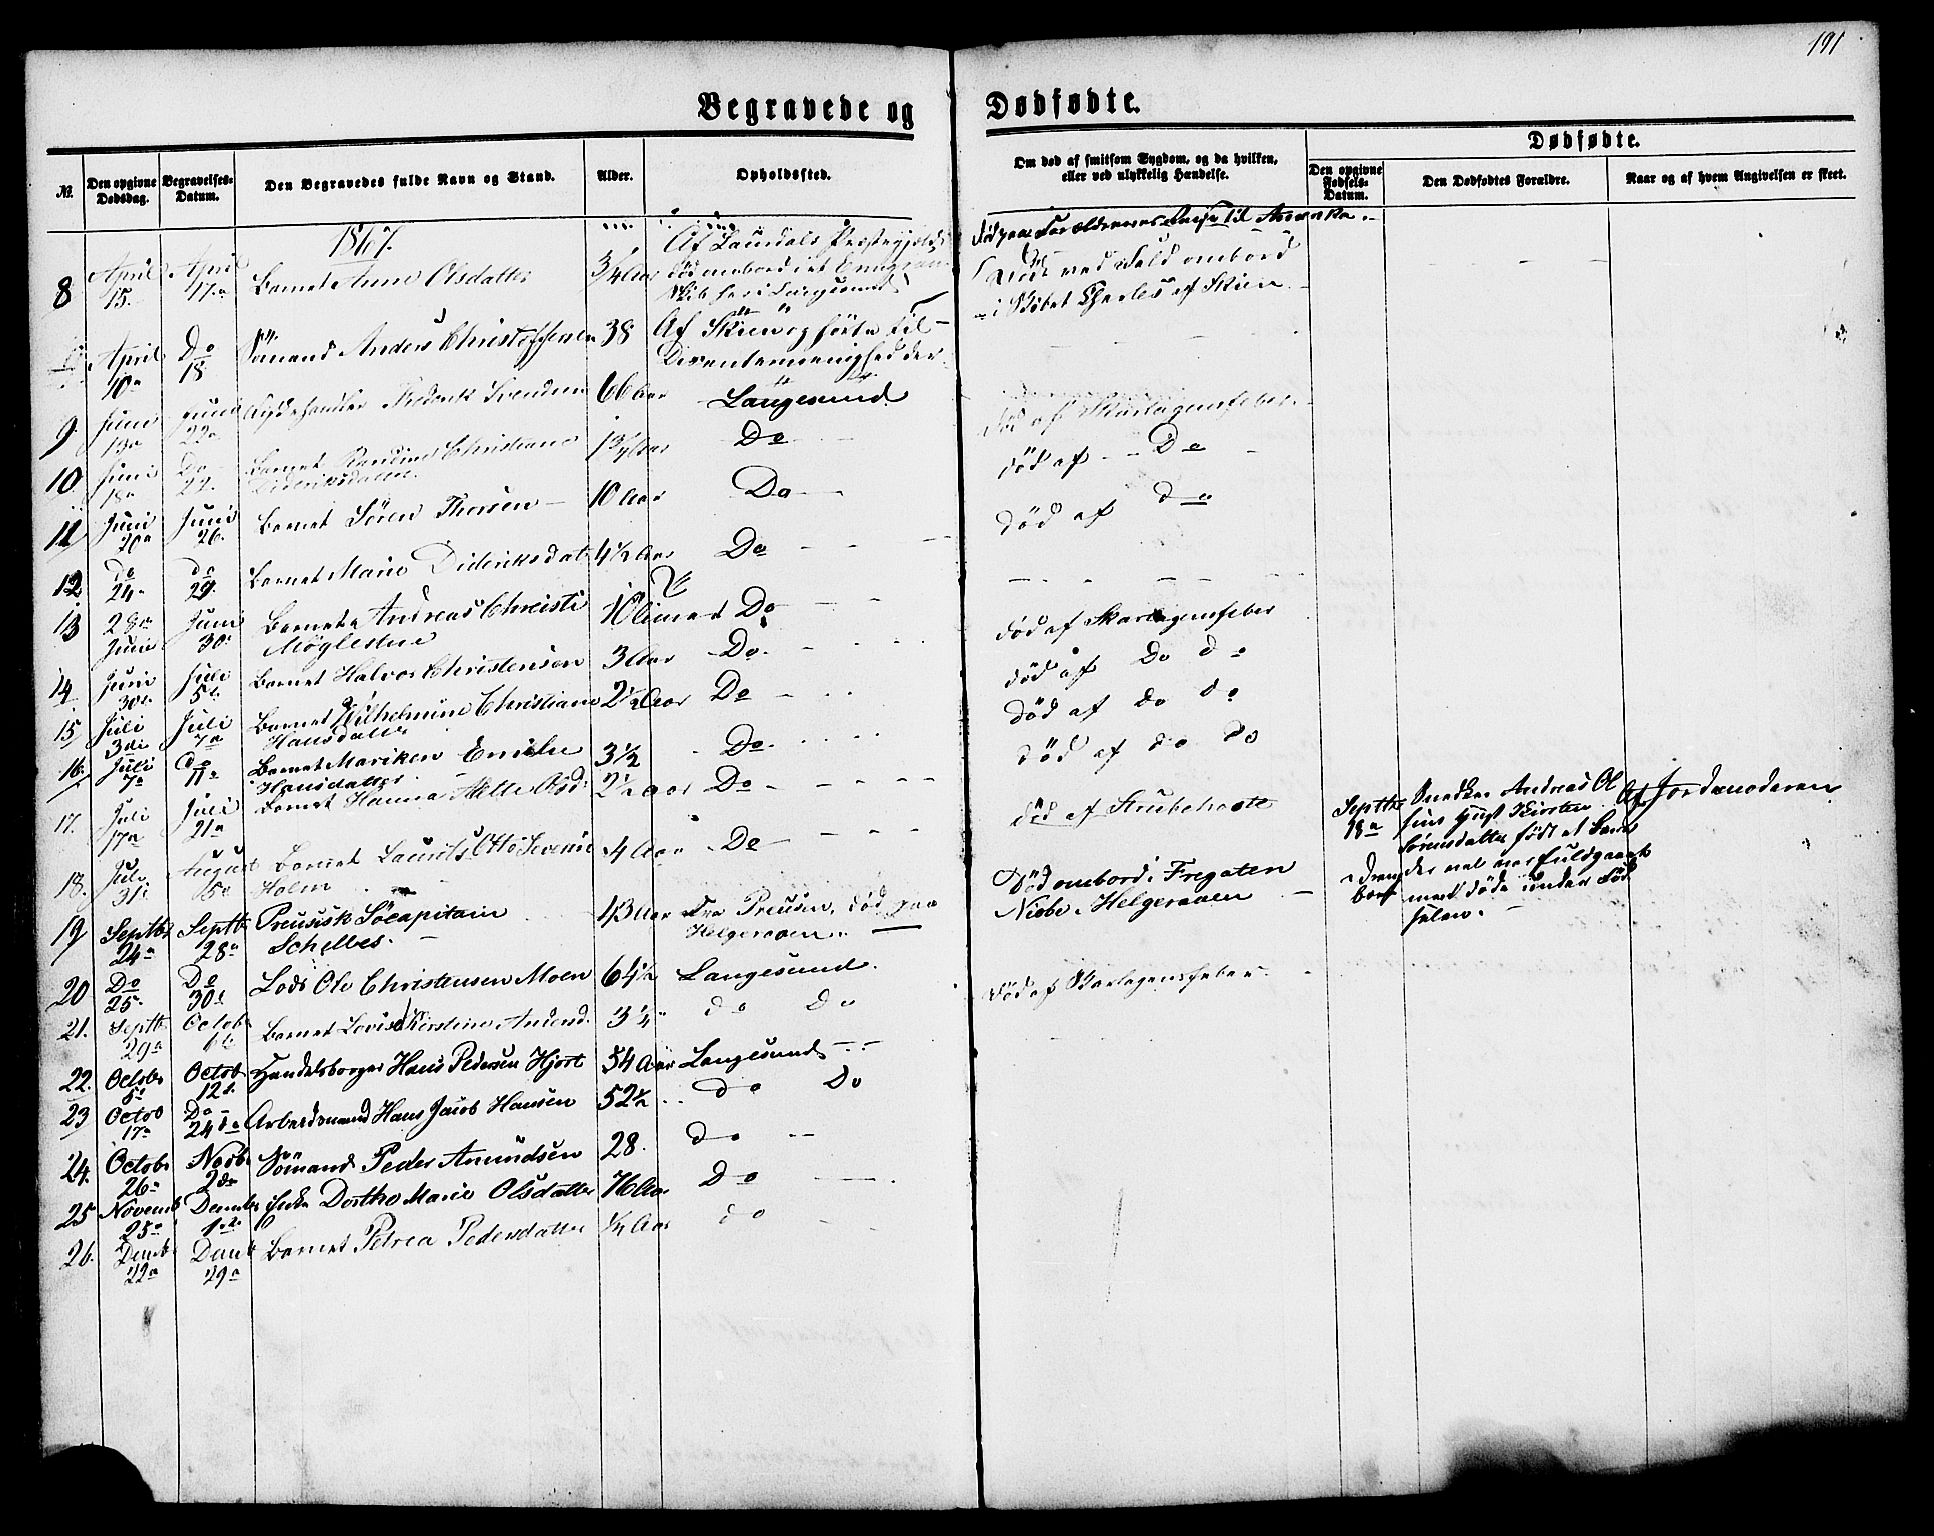 191
Begravede og Dødfødte.
№
Den opgivne Dødsdag.
Begravelses-Datum.
Den Begravedes fulde Navn og Stand.
Alder.
Opholdssted.
Om død af smitsom Sygdom, og da hvilken, eller ved ulykkelig Hændelse.
Dødfødte.
Den opgivne Fødsels-Datum.
Den Dødfødtes Forældre.
Naar og af hvem Angivelsen er skeet.
1867.
8 April 15. April 17. Barnet Anne Olsdatter 3/4 Aar Af Laurdals Præstegjeld død ombord i et
Skib her i Langesund
ved Fald ombord
i Skibet Charles af Skien
April 10 Do 18 Sömand Anders Christophersen 38 Af Skien og hörte til
Dissentermenighed der
9 Juni 13 Juni 22 Fredrik Svendsen 66 Aar Langesund
10 Juni 18 Do 22 Barnet Christiane Dideriksdatter Do död af Skarlagensfeber
11 Juni 20 Juni 26 Barnet Sören Thorsen 10 Aar Do död af Do
12 do 24 do 29 Barnet Marie Dideriksdat 4½ Aar Do död af do
13 28 Juni Juni 30 Barnet Andreas Christi Möglestue Do
14 Juni 30 Juli 5 Barnet Halvor Christensen 3 Aar Do död af Skarlagensfeber
15 Juli 3 Juli 7 Barnet Wilhelmine Christiane Hansdatter 2½ Aar Do död af Do do
16. Juli 7 Do 11 Barnet Mariken Emilie Hansdatter 3½ Do död af do do
17. Juli 17 Juli 21 Barnet Hanna 2½ Aar Do död af do do
18. Juli 31 August 5 Barnet Laurits Otto Severin Holm 4 Aar Do död af Strubehoste
19 Septbr 24 Septb 28 Preusisk Söcapitain Schelbes. 43 Aar Fra Preusen, död paa Helgeraaen
Död ombord i Fregaten
Niobe, Helgeraaen
Septbr 18
Snedker Andreas Ol
sens Kirsten
Sörensdatter födt et Barn
der vel var fuldgaaet
men döde under Föd
selen.
Af Jordemoderen
20 Do 25. Do 30 Lods Ole Christensen Moen 64½ Langesund.
21. Septb 29 Octob 6 Barnet Lovise Kirstine Andersd. 3¼ do Do död af Skarlagensfeber
22. Octobr 5 Octob 12 Handelsborger Hans Pedersen Hjort 54 Aar Langesund
23 Octob 17 Do 24 Arbeidsmand Hans Jacob Hansen 52½ do Do
24. Octobr 26 Novb 2 Sömand Peder Amundsen 28. do
25 Novemb 25 Decembr 1 Enke Dorthe Marie Olsdatter 76 Aar Do
26. Decmb 22 Decmb 29 Barnet Petrea Pedersdatter ¼ Aar do